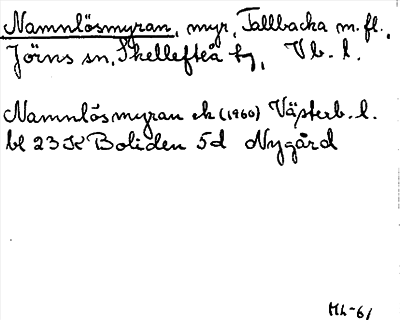 Namnlösmyran, myr, Tallbacka m.fl.,
Jörns sn, Skellefteå tg, Vb. l.
Namnlösmyran ek (1960) Västerb. l.
bl 23 K Boliden 5d Nygård
ML-61